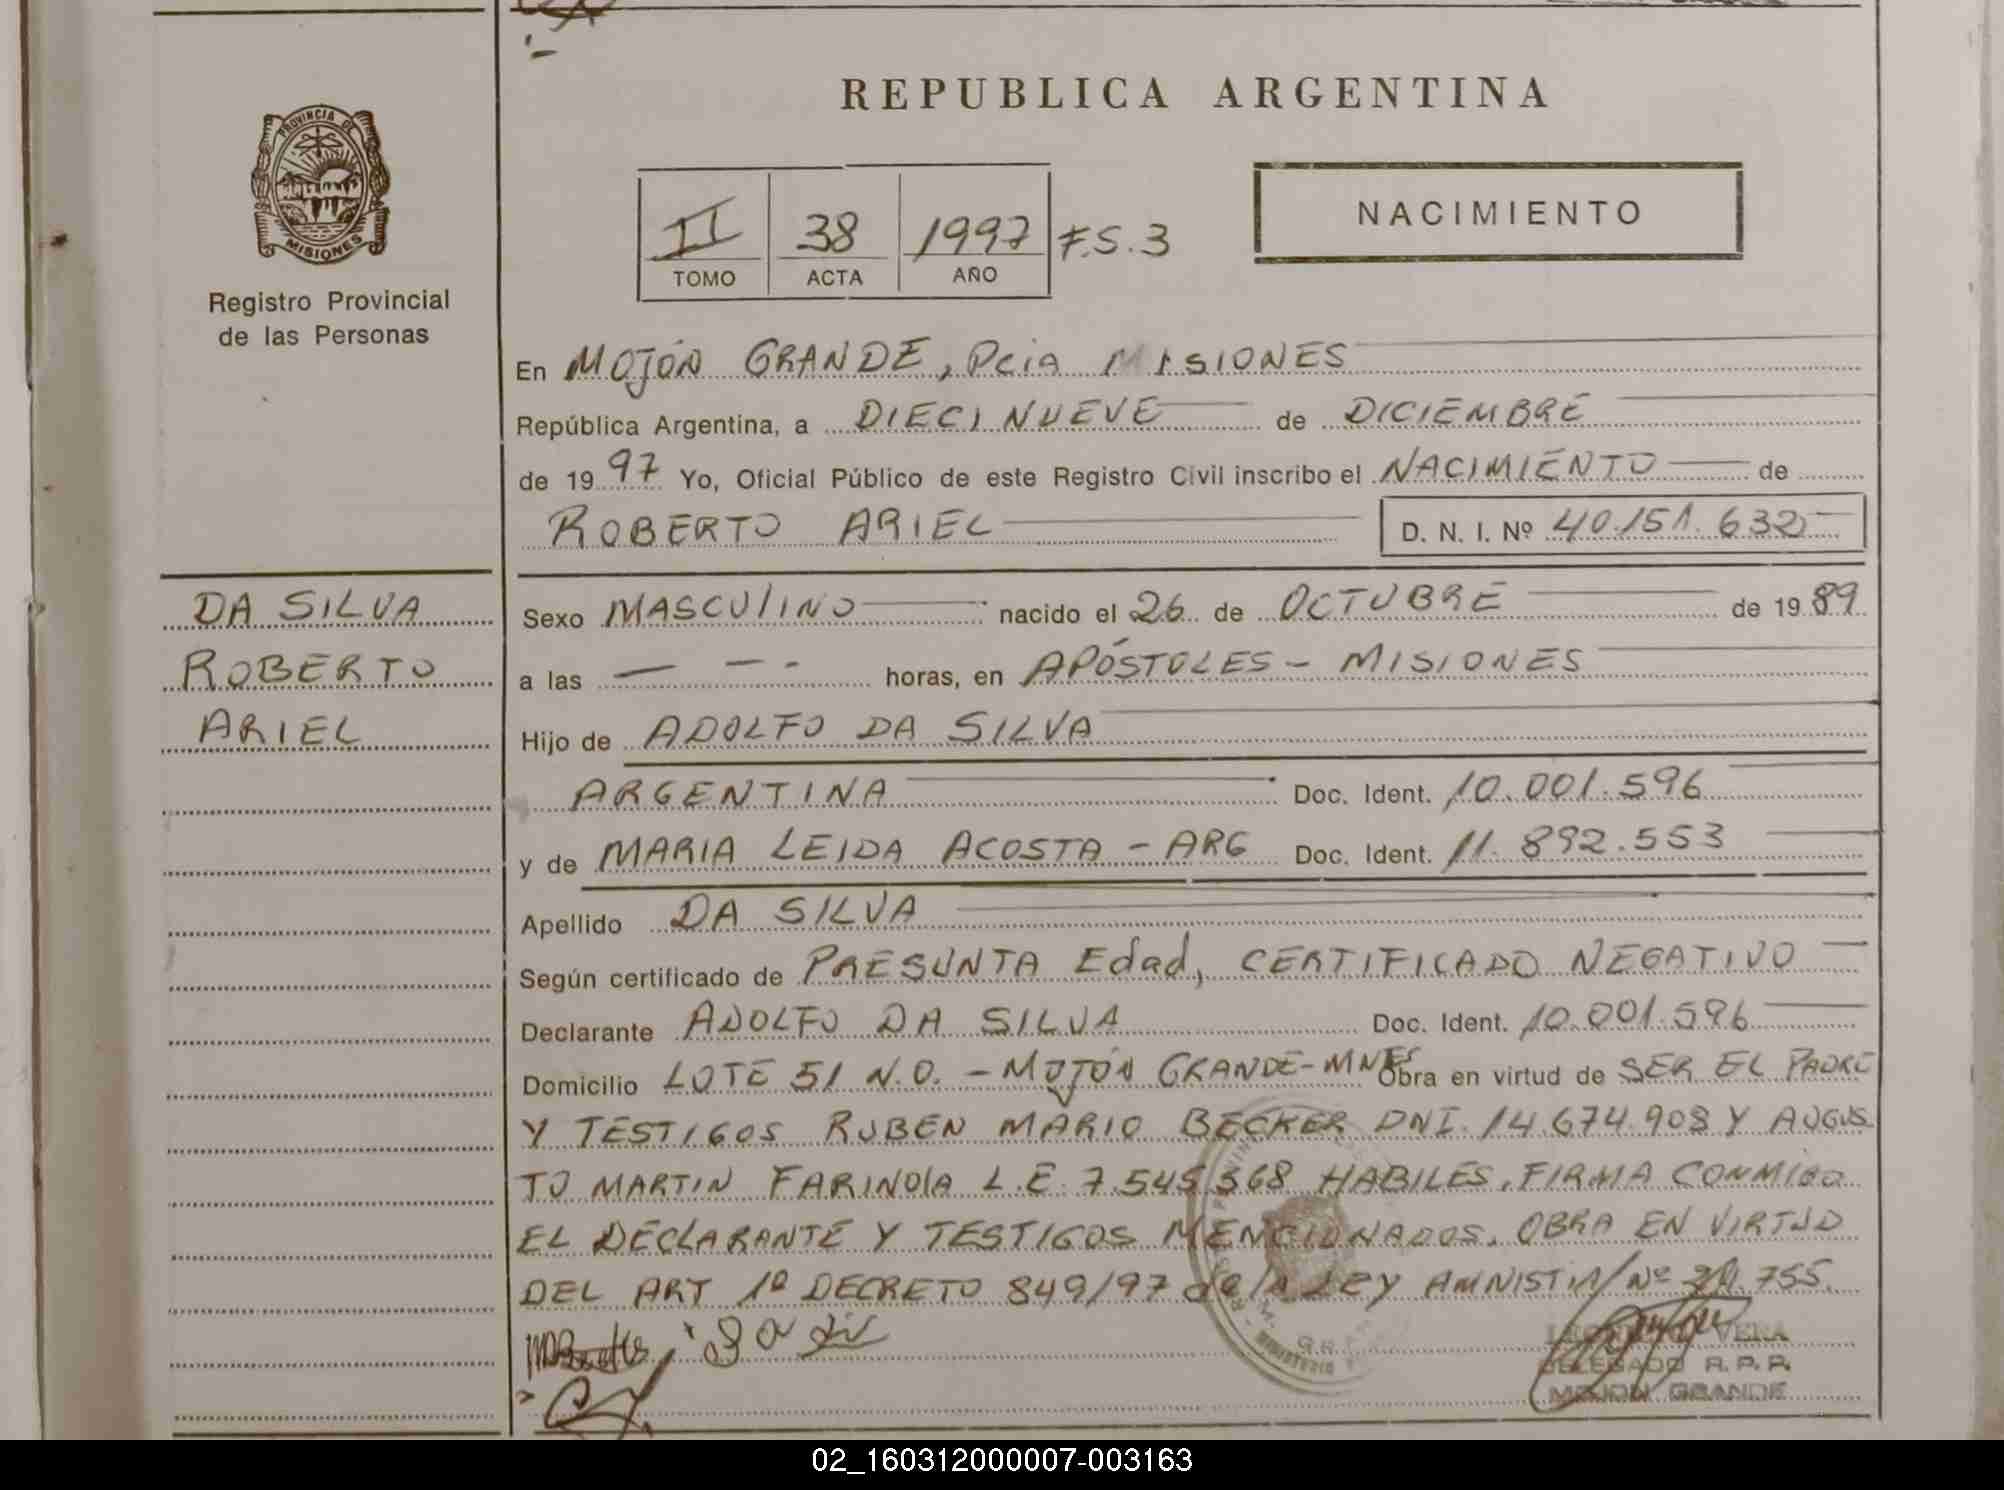 REPUBLICA ARGENTINA
PROVINCIA DE
MISIONES
Registro Provincial
de las Personas
II 38 1997 F.S.3
TOMO ACTA AÑO
NACIMIENTO
En MOJÓN GRANDE, Pcia MISIONES
República Argentina, a DIECINUEVE de DICIEMBRE
de 1997 Yo, Oficial Público de este Registro Civil inscribo el NACIMIENTO de
ROBERTO ARIEL D. N. I. Nº 40.151.632
DA SILVA
ROBERTO
ARIEL
Sexo MASCULINO nacido el 26 de OCTUBRE de 1989
a las — — - horas, en APÓSTOLES - MISIONES
Hijo de ADOLFO DA SILVA
ARGENTINA Doc. Ident. 10.001.596
y de MARIA LEIDA ACOSTA - ARG Doc. Ident. 11.892.553
Apellido DA SILVA
Según certificado de PRESUNTA Edad, CERTIFICADO NEGATIVO
Declarante ADOLFO DA SILVA Doc. Ident. 10.001.596
Domicilio LOTE 51 N.O. - MOJÓN GRANDE-MNES Obra en virtud de SER EL PADRE
Y TESTIGOS RUBEN MARIO BECKER DNI. 14.674.908 Y AUGUS
TO MARTIN FARINOLA L.E. 7.545.368 HABILES. FIRMA CONMIGO
EL DECLARANTE Y TESTIGOS MENCIONADOS. OBRA EN VIRTUD
DEL ART 1º DECRETO 849/97 de la LEY AMNISTIA Nº 755.
VERA
DELEGADO R.P.P.
MOJON GRANDE
MINISTERIO
02_160312000007-003163